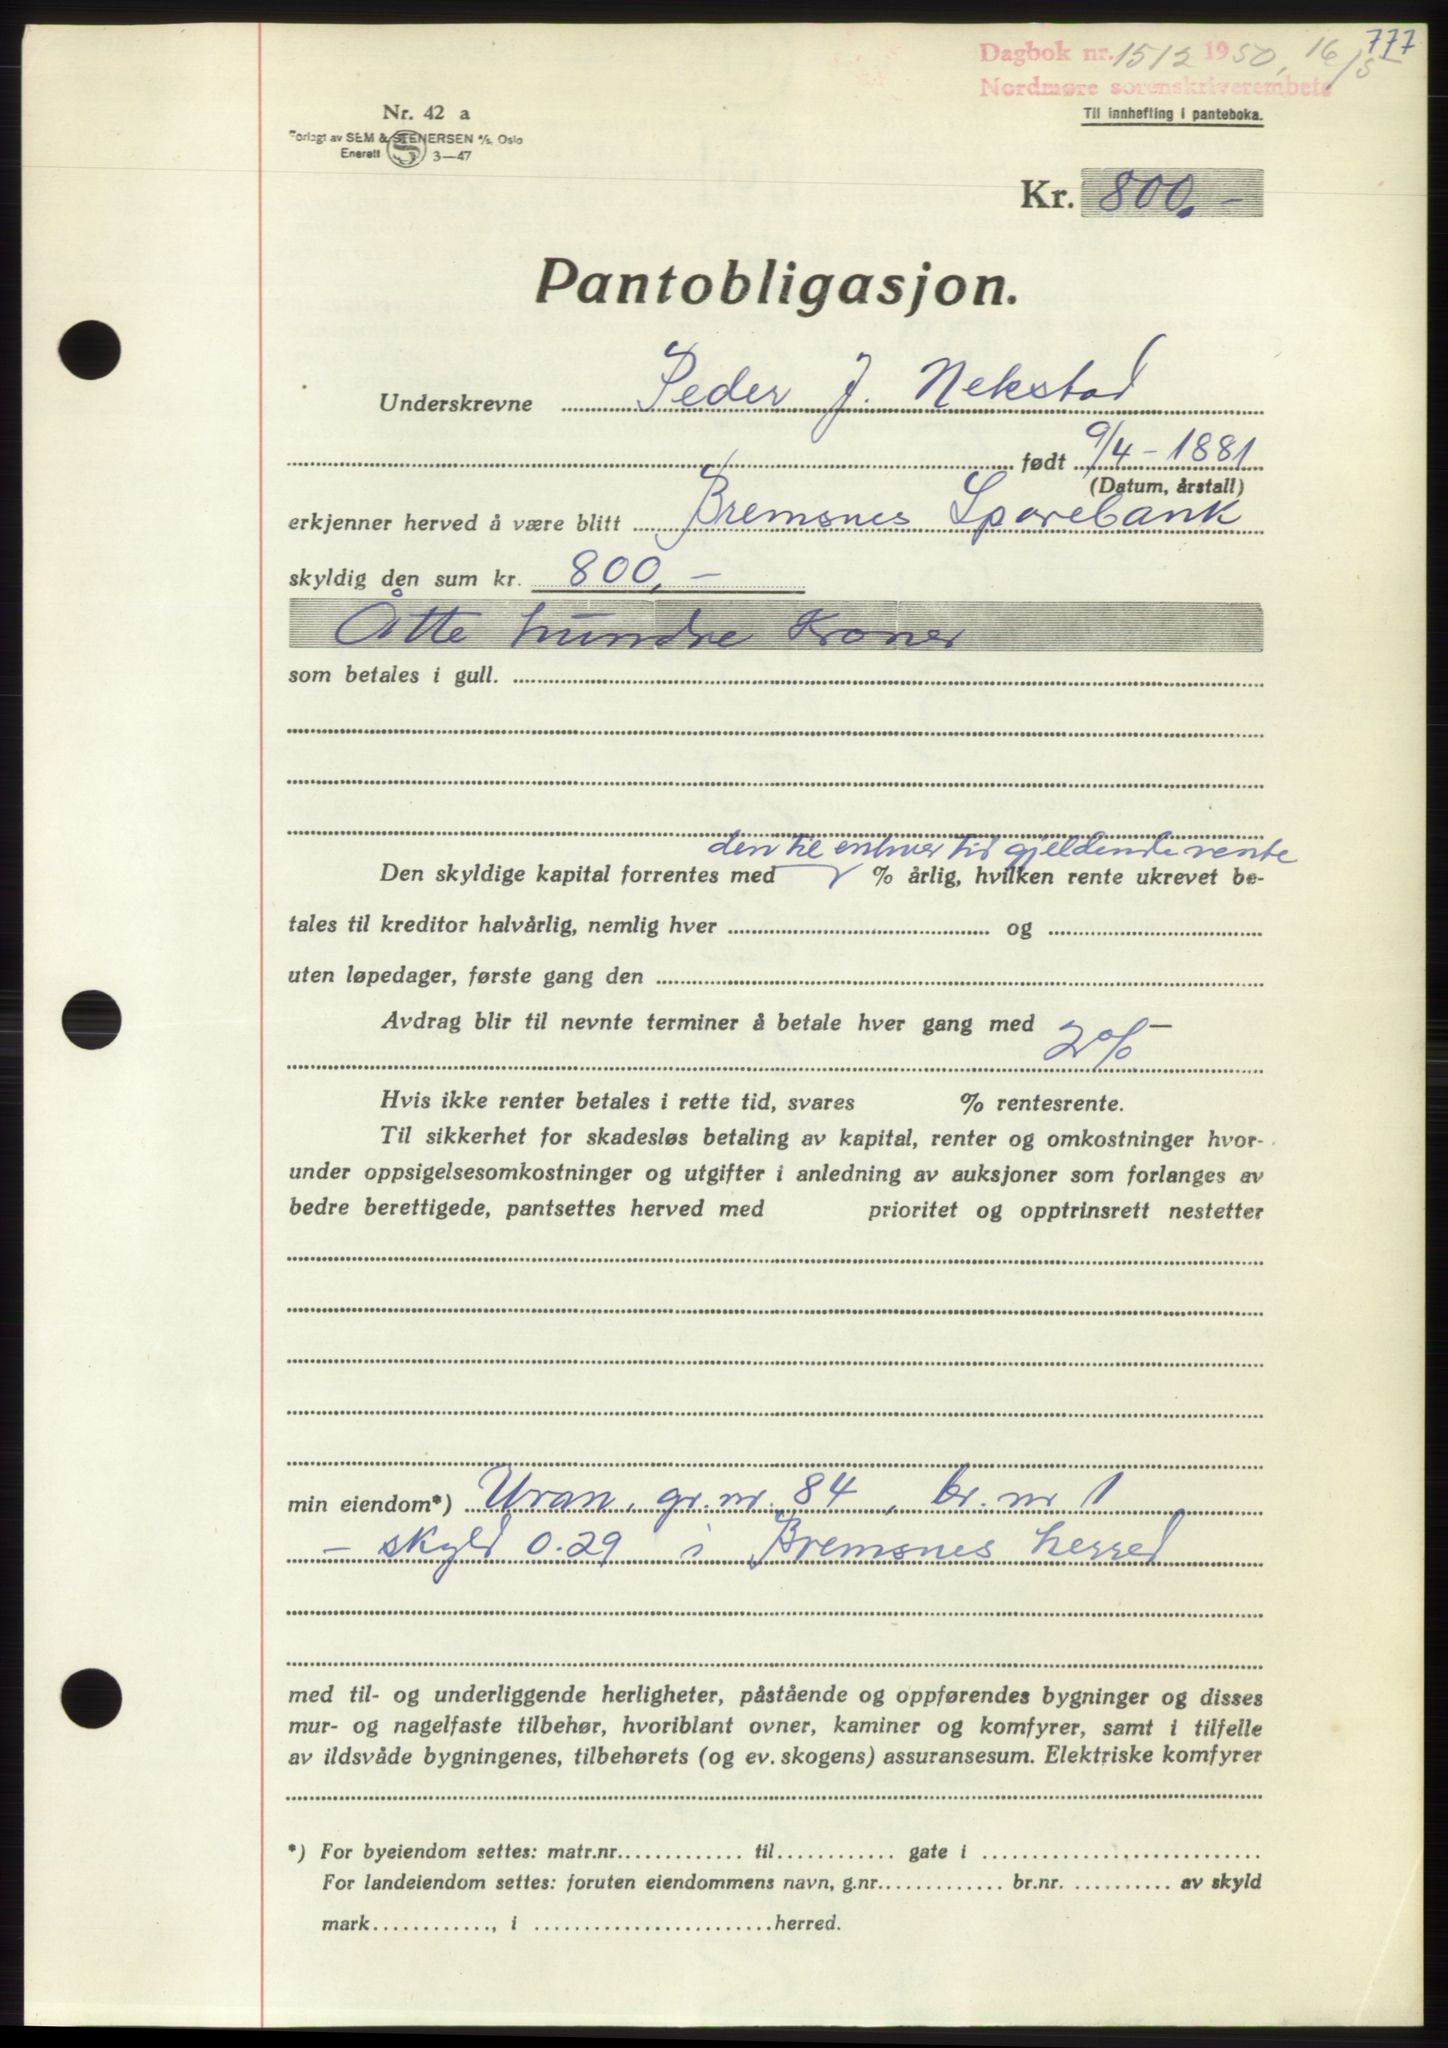 777
Dagbok nr. 1512 1950, 16/5
Nordmøre sorenskriverembete
Til innhefting i panteboka.
Nr. 42 a
Forlagt av SEM & STENERSEN A/S, Oslo
Enerett S 3—47
Kr. 800,-
Pantobligasjon.
Underskrevne Peder J. Nekstad
født 9/4 - 1881
(Datum, årstall)
erkjenner herved å være blitt Bremsnes Sparebank
skyldig den sum kr. 800,-
Åtte hundre Kroner
som betales i gull.
den til enhver tid gjeldende rente
Den skyldige kapital forrentes med % årlig, hvilken rente ukrevet be-
tales til kreditor halvårlig, nemlig hver og
uten løpedager, første gang den
Avdrag blir til nevnte terminer å betale hver gang med
2%
Hvis ikke renter betales i rette tid, svares % rentesrente.
Til sikkerhet for skadesløs betaling av kapital, renter og omkostninger hvor-
under oppsigelsesomkostninger og utgifter i anledning av auksjoner som forlanges av
bedre berettigede, pantsettes herved med prioritet og opptrinsrett nestetter
min eiendom*) Uran, gr. nr. 84, br. nr 1
- skyld 0.29 i Bremsnes herred
med til- og underliggende herligheter, påstående og oppførendes bygninger og disses
mur- og nagelfaste tilbehør, hvoriblant ovner, kaminer og komfyrer, samt i tilfelle
av ildsvåde bygningenes, tilbehørets (og ev. skogens) assuransesum. Elektriske komfyrer
*) For byeiendom settes: matr.nr. til gate i
For landeiendom settes: foruten eiendommens navn, g.nr. br.nr. av skyld
mark , i herred.